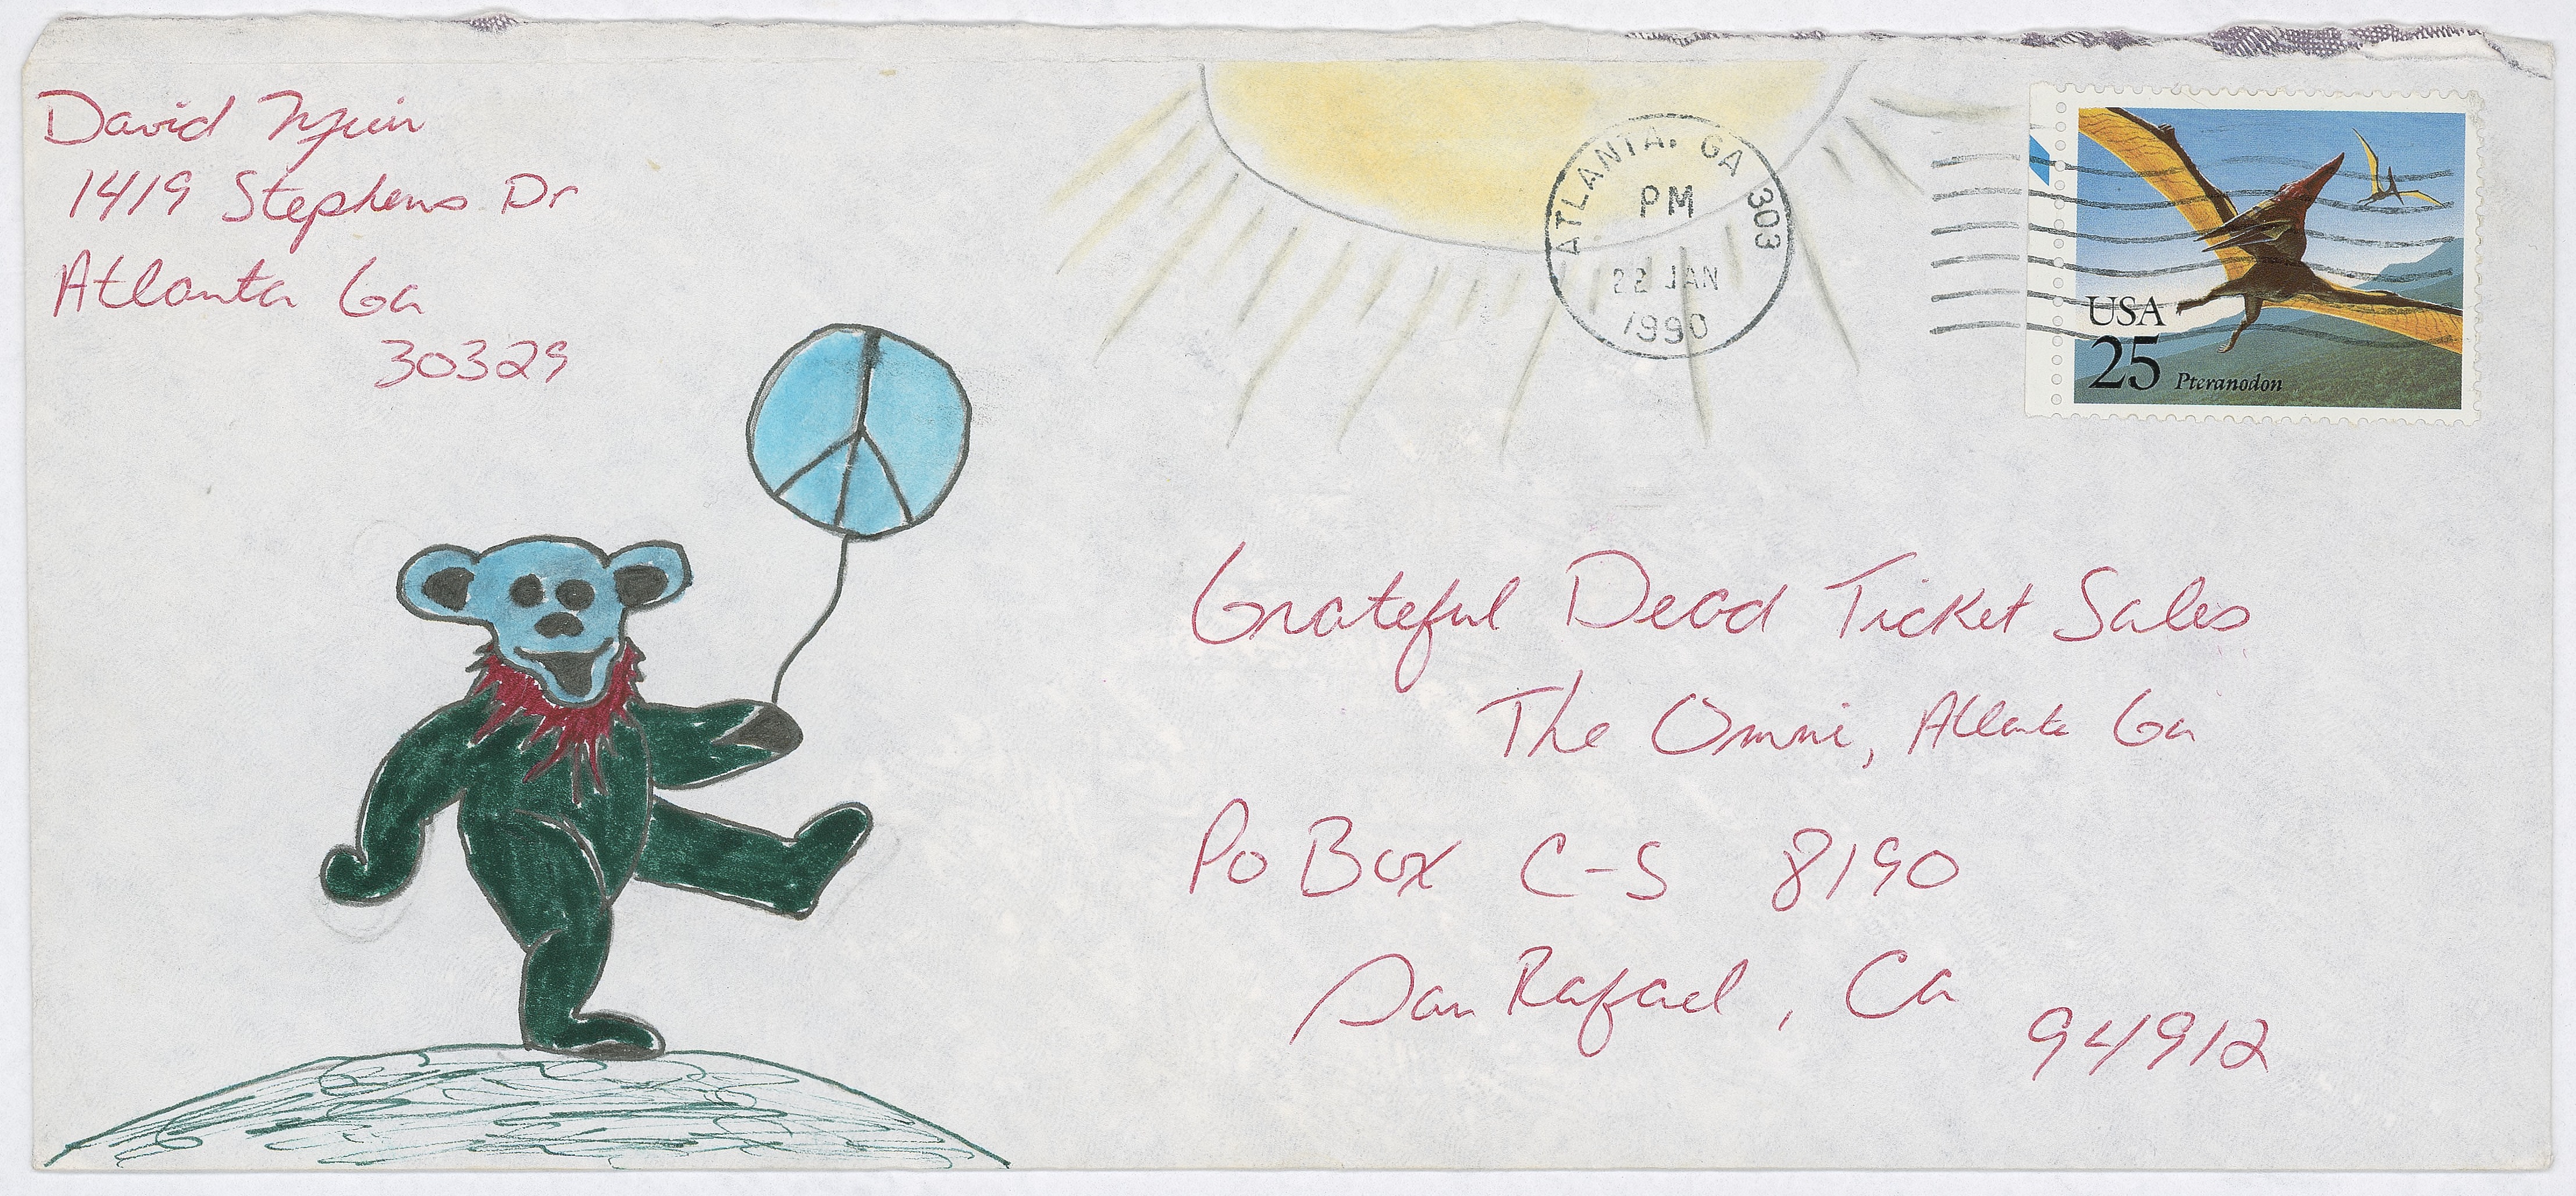 David
1419 Stephens Dr
Atlanta Ga
30329
ATLANTA, GA 303
PM
22 JAN
1990
USA
25 Pteranodon
Grateful Dead Ticket Sales
The Omni, Atlanta Ga
Po Box C-S 8190
San Rafael, Ca
94912